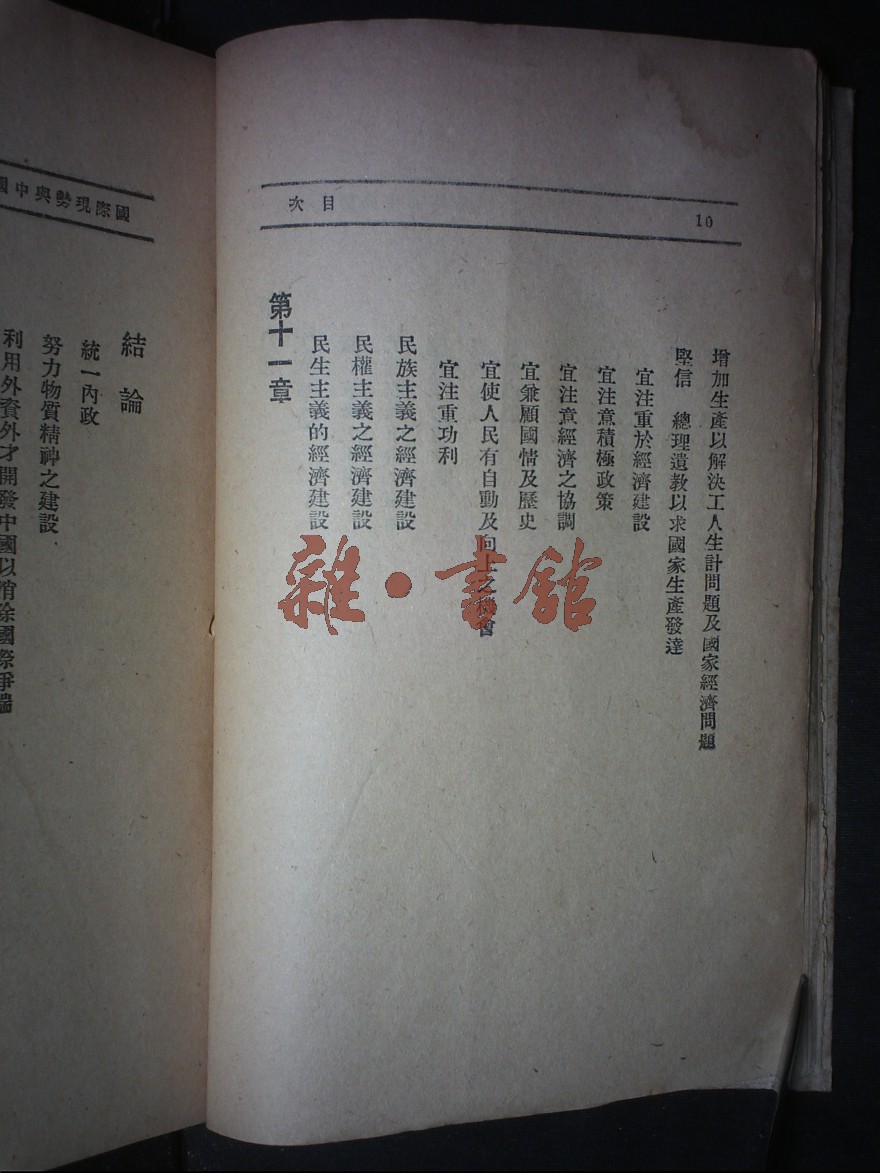 次目
10
增加生產以解決工人生計問題及國家經濟問題
堅信　總理遺教以求國家生產發達
宜注重於經濟建設
宜注意積極政策
宜注意經濟之協調
宜兼顧國情及歷史
宜使人民有自動及向上之機會
宜注重功利
民族主義之經濟建設
民權主義之經濟建設
民生主義的經濟建設
第十一章
國際現勢與中國
結論
統一內政
努力物質精神之建設
利用外資外才開發中國以消除國際爭端
雜·書館